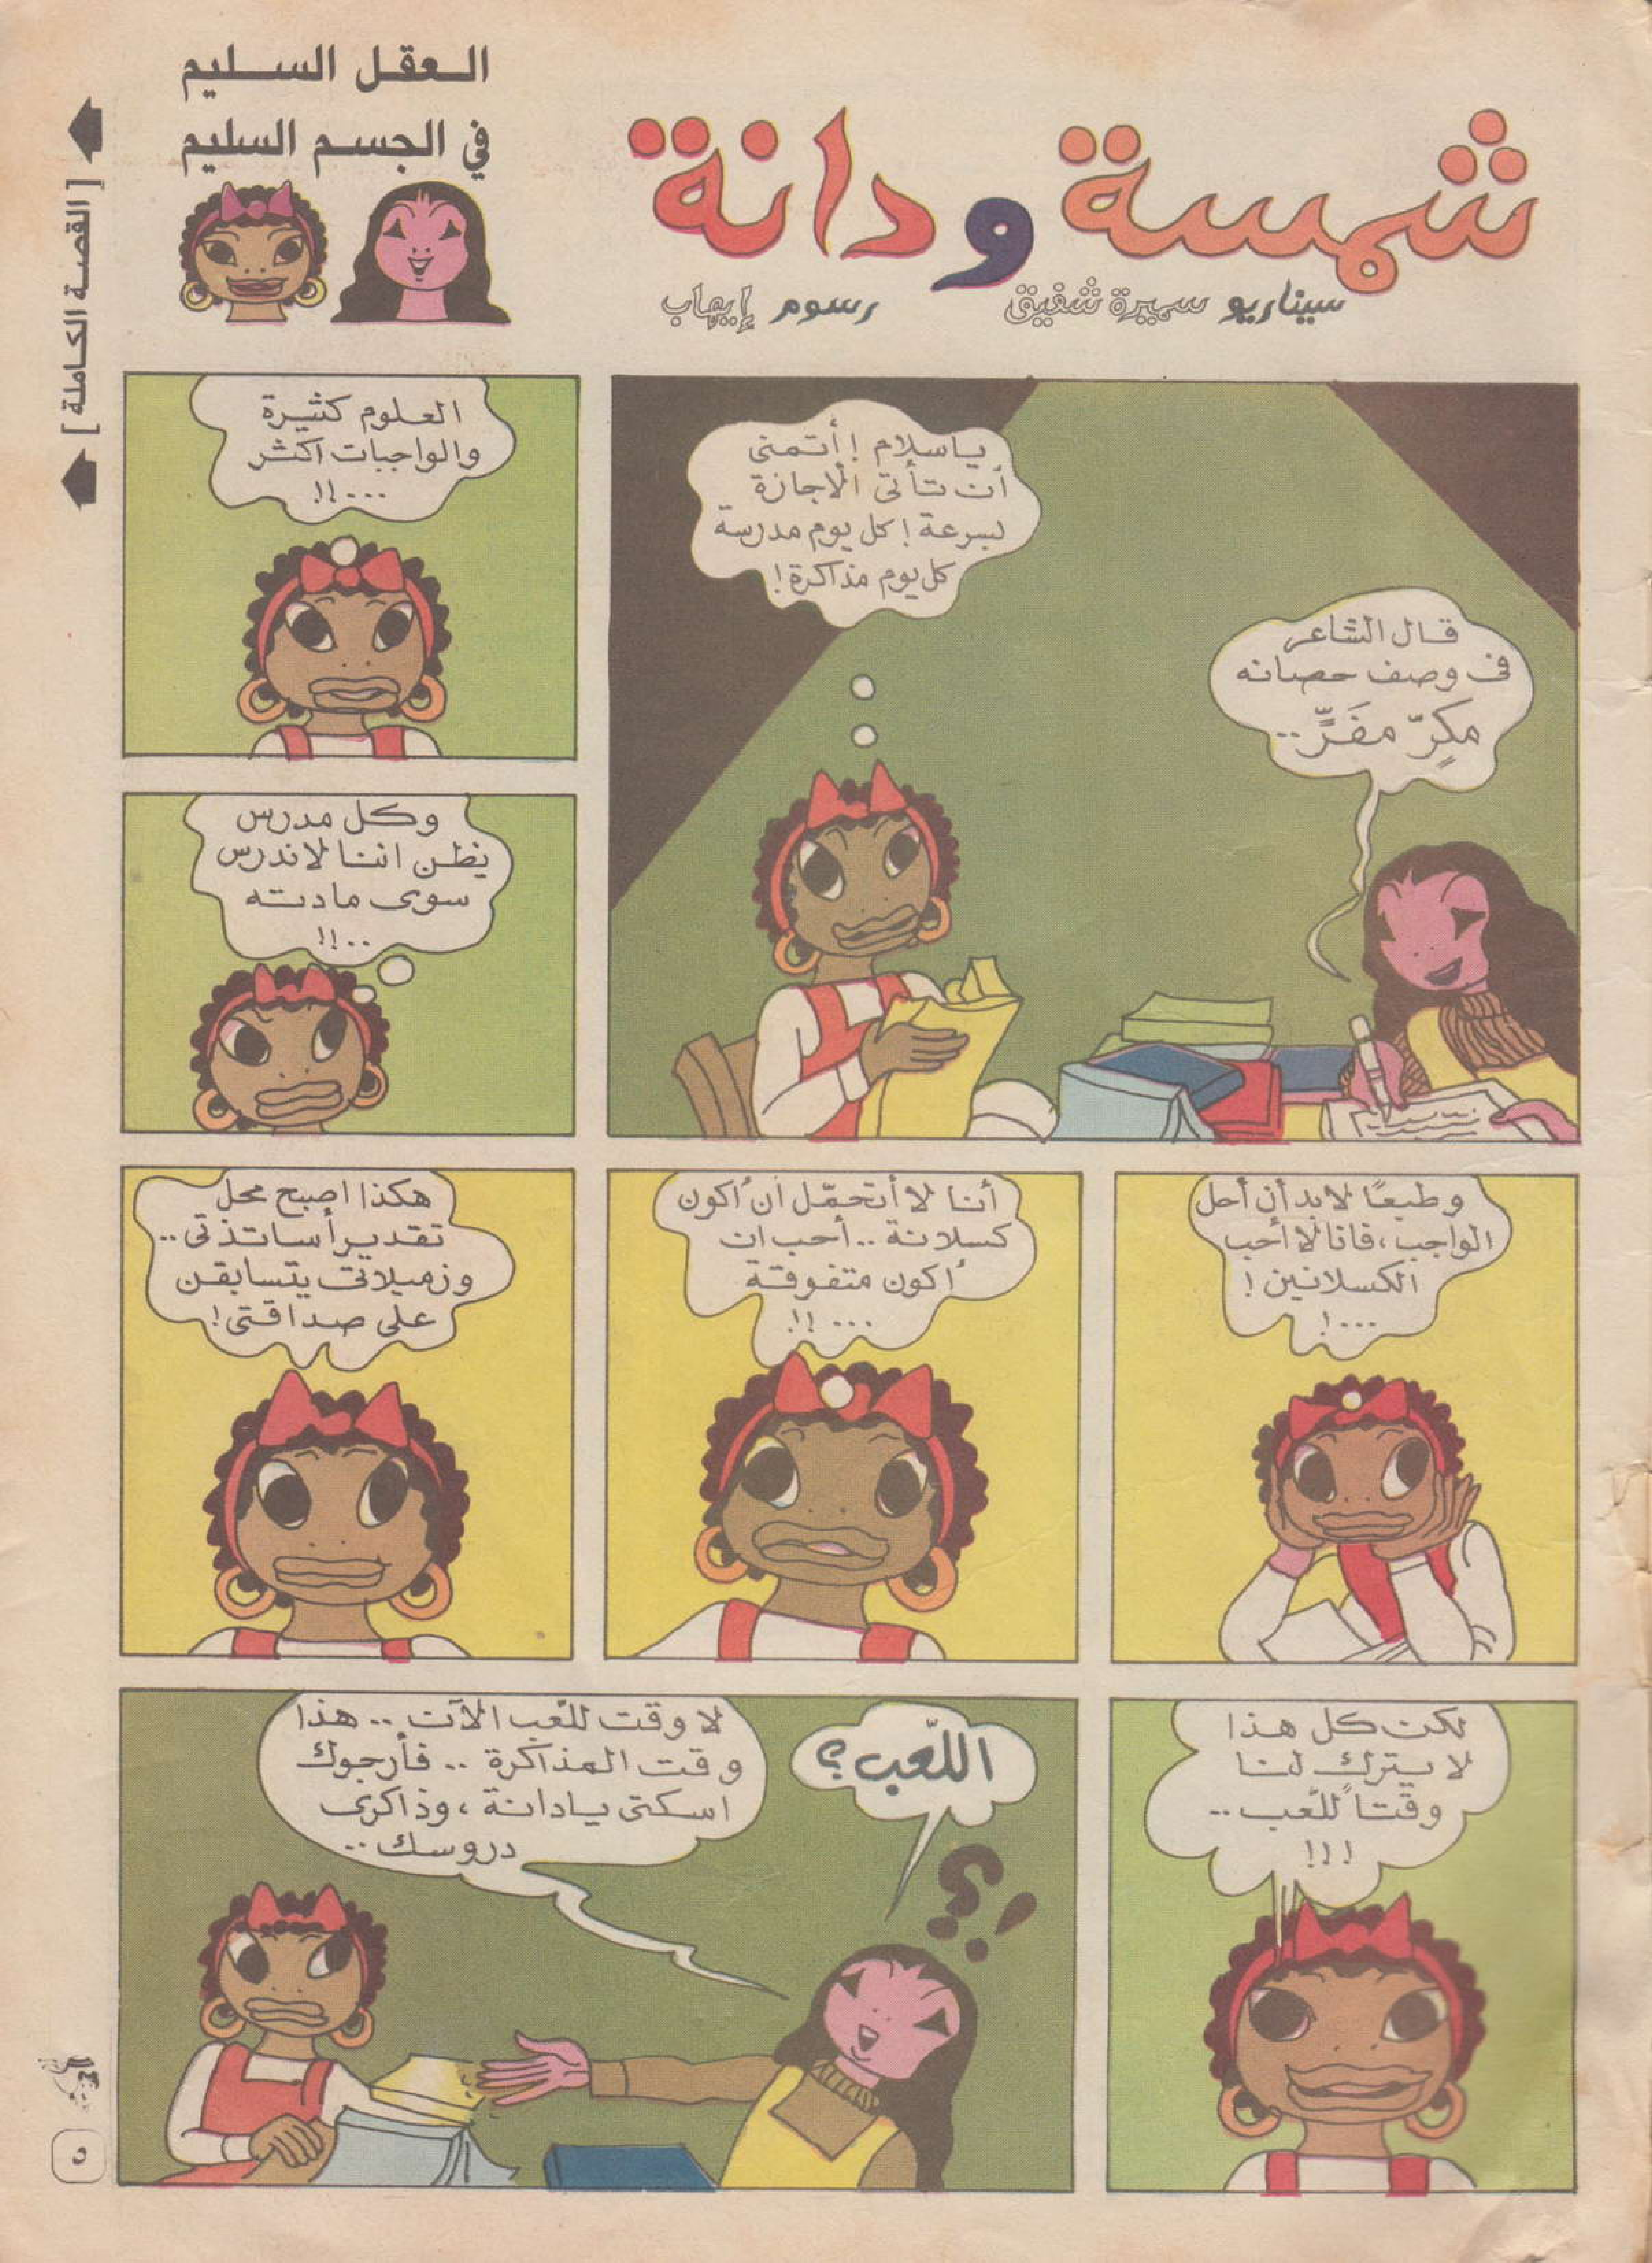 شمسة ودانة
سيناريو سميرة شفيق
رسوم إيهاب
العقل السليم
في الجسم السليم
[ القصة الكاملة ]
قال الشاعر
فى وصف حصانه
مِكرّ مفَرٍّ ..
ياسلام ! أتمنى
أن تأتى الاجازة
بسرعة ! كل يوم مدرسة
كل يوم مذاكرة !
العلوم كثيرة
والواجبات اكثر
...!!
وكل مدرس
يظن اننا لاندرس
سوى مادته
..!!
وطبعًا لابد أن أحل
الواجب، فانا لا أحب
الكسلانين !
...!
أنا لا أتحمّل ان أكون
كسلانة .. أحب ان
أكون متفوقة
...!!
هكذا اصبح محل
تقدير أساتذتى ..
وزميلاتى يتسابقن
على صداقتى !
لكن كل هذا
لا يترك لنا
وقتاً للّعب ..
!!!
اللّعب ؟
؟!
لا وقت للّعب الآن .. هذا
وقت المذاكرة .. فأرجوك
اسكتى يادانة ، وذاكرى
دروسك ..
٥